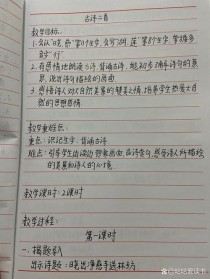 古诗二首
教学目标:
1.会认"晓、慈"等17个生字,会写9个字,
多音字"行"
2.有感情地朗读古诗,背诵古诗,能初步了解诗句的美
景,说出诗句描绘的画面。
3.感悟诗人对大自然美景的赞美之情,培养学生热爱大自
然的思想感情
教学重难点:
重点:识记生字、背诵古诗
难点:引导学生边读边想象画面,品诗赏句,感受诗人所描绘
的美景和诗人的心情
教学课时:2课时
教学过程:
第一课时
一、揭题导入
出示诗题:晓出净慈寺送林子方